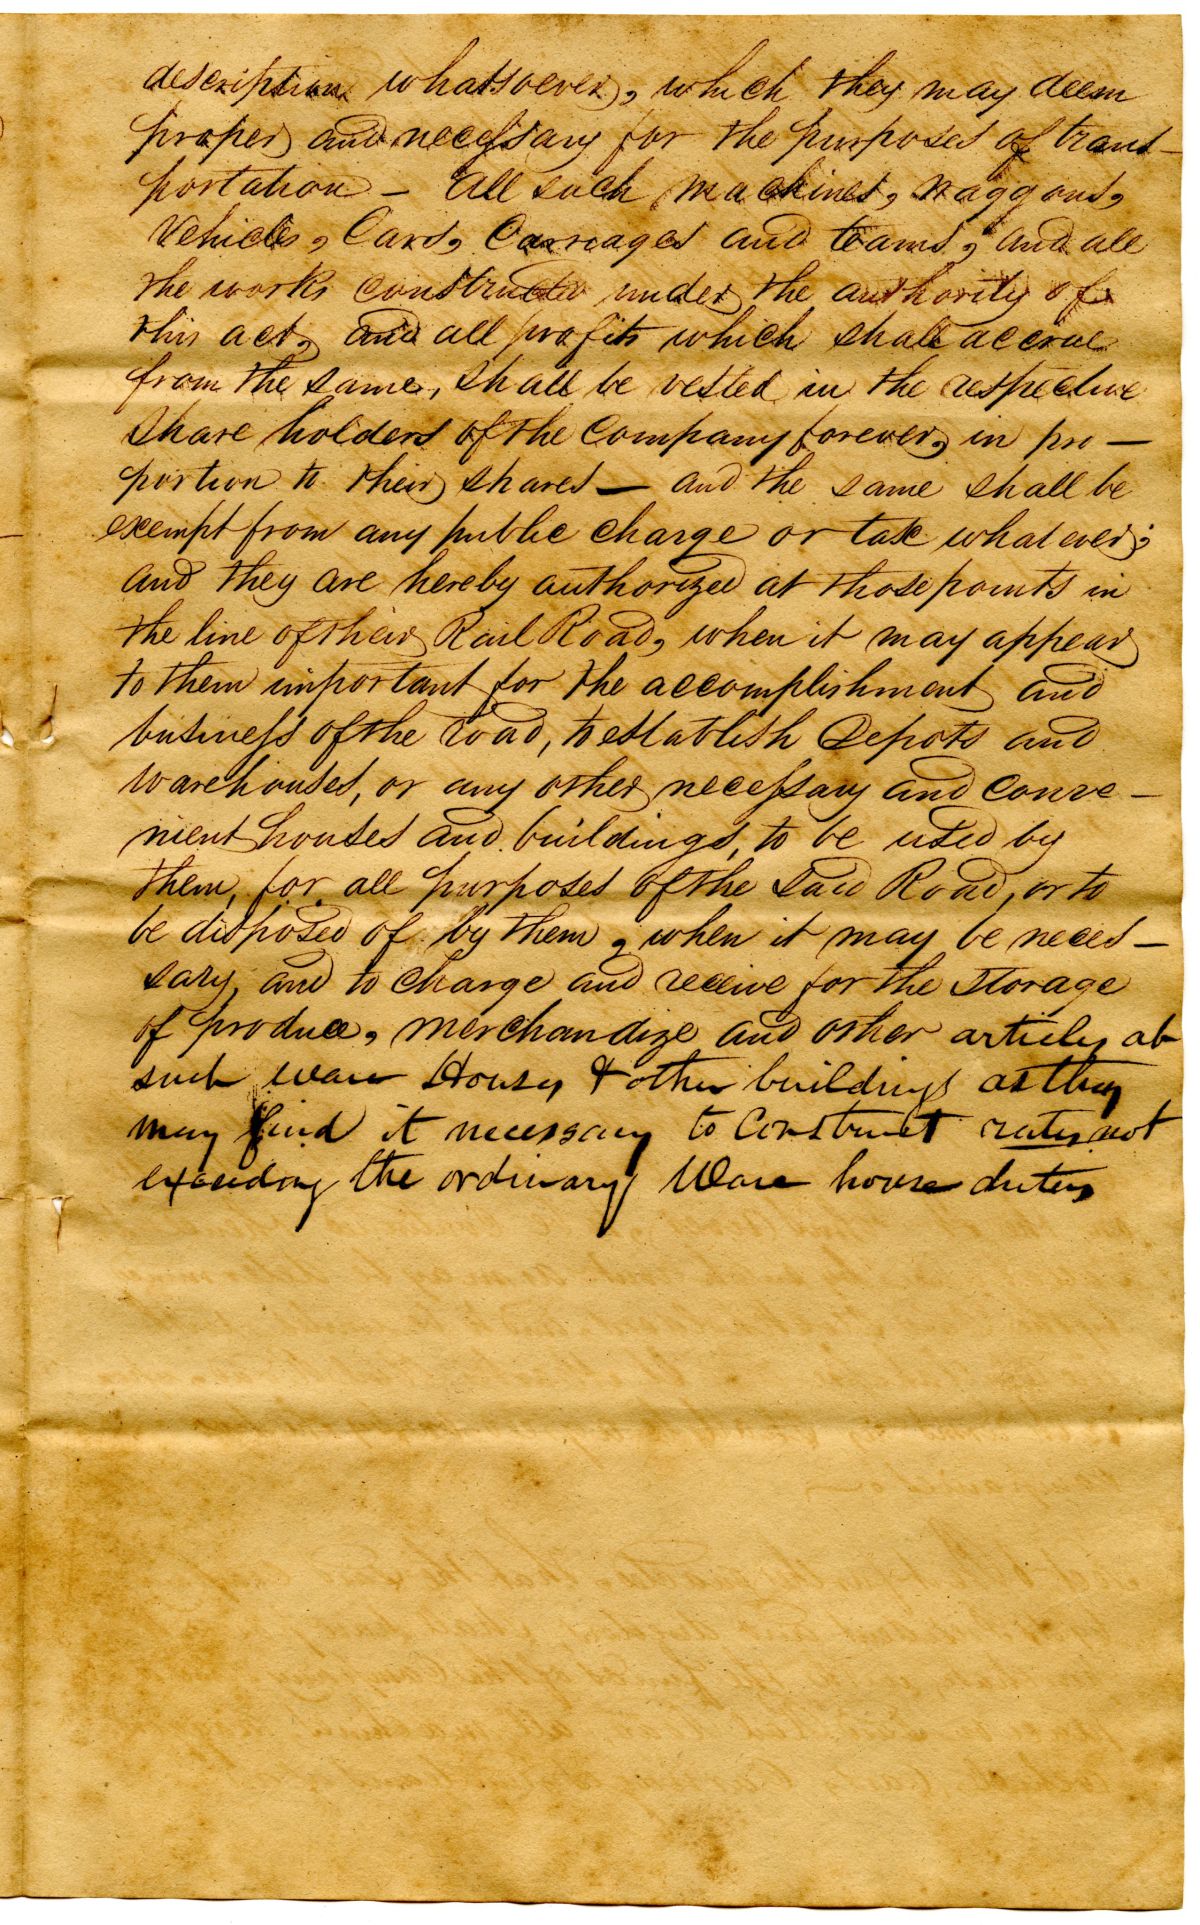 description whatsoever, which they may deem
proper and necessary for the purposes of trans-
portation - All such machines, waggons,
Vehicles, Cars, Carriages and teams, and all
the works constructed under the authority of
this act, and all profits which shall accrue
from the same, shall be vested in the respective
share holders of the Company forever, in pro-
portion to their shares - and the same shall be
exempt from any public charge or tax whatever;
and they are hereby authorized at those points in
the line of their Rail Road, when it may appear
to them important for the accomplishment and
business of the road, to establish Depots and
warehouses, or any other necessary and conve-
nient houses and buildings, to be used by
them, for all purposes of the said Road, or to
be disposed of by them, when it may be neces-
sary, and to charge and receive for the storage
of produce, merchandize and other articles at
such ware Houses & other buildings as they
may find it necessary to Construct rates not
exceeding the ordinary Ware house duties